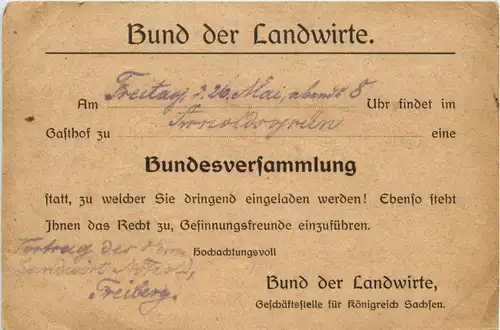 Bund der Landwirte.
Am Freitag, d. 26. Mai, abends 8 Uhr findet im
Gasthof zu Arnoldsgrün eine
Bundesversammlung
statt, zu welcher Sie dringend eingeladen werden! Ebenso steht
Ihnen das Recht zu, Gesinnungsfreunde einzuführen.
Vortrag des Herrn
Hochachtungsvoll
Landwirt
Freiberg.
Bund der Landwirte,
Geschäftsstelle für Königreich Sachsen.